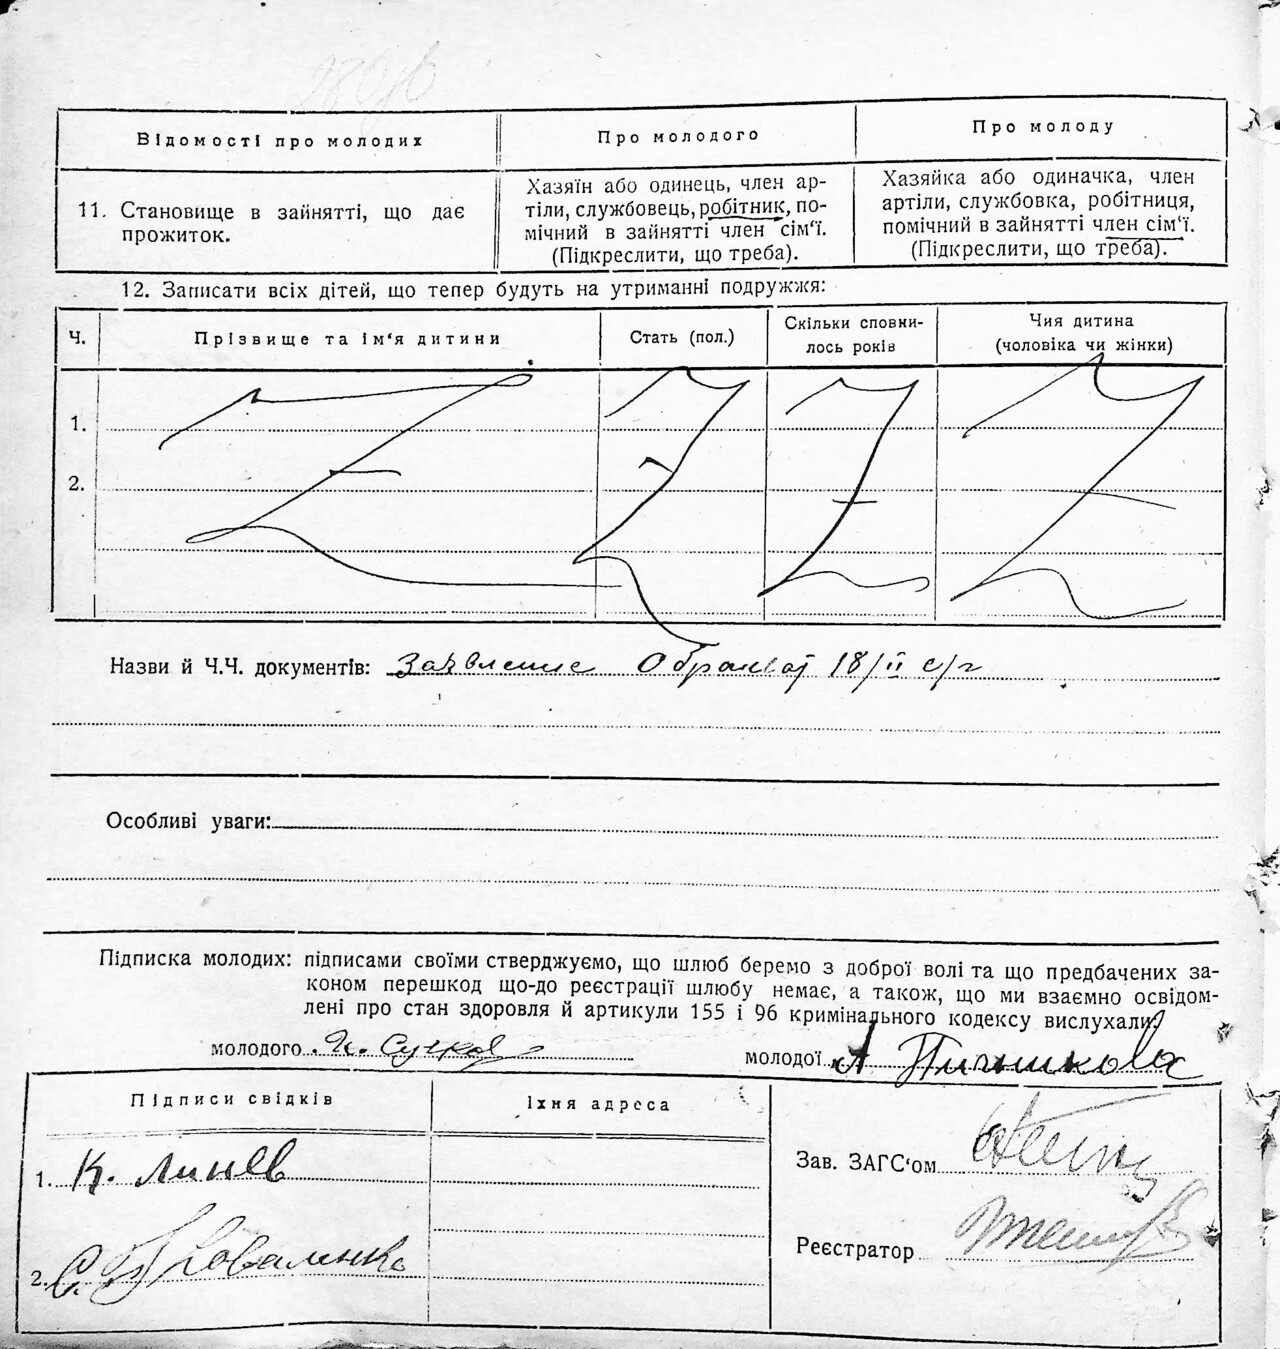 Відомості про молодих
Про молодого
Про молоду
11. Становище в зайнятті, що дає
прожиток.
Хазяїн або одинець, член ар-
тілі, службовець, робітник, по-
мічний в зайнятті член сім'ї.
(Підкреслити, що треба).
Хазяйка або одиначка, член
артілі, службовка, робітниця,
помічний в зайнятті член сім'ї.
(Підкреслити, що треба).
12. Записати всіх дітей, що тепер будуть на утриманні подружжя:
Ч.
Прізвище та ім'я дитини
Стать (пол.)
Скільки сповни-
лось років
Чия дитина
(чоловіка чи жінки)
1.
2.
Назви й Ч.Ч. документів: Заявление 18/II с/г
Особливі уваги:
Підписка молодих: підписами своїми стверджуємо, що шлюб беремо з доброї волі та що предбачених за-
коном перешкод що-до реєстрації шлюбу немає, а також, що ми взаємно освідом-
лені про стан здоровля й артикули 155 і 96 кримінального кодексу вислухали.
молодого
молодої А Пичшкова
Підписи свідків
Їхня адреса
1. К. Линев
2. С. Коваленко
Зав. ЗАГС'ом
Реєстратор